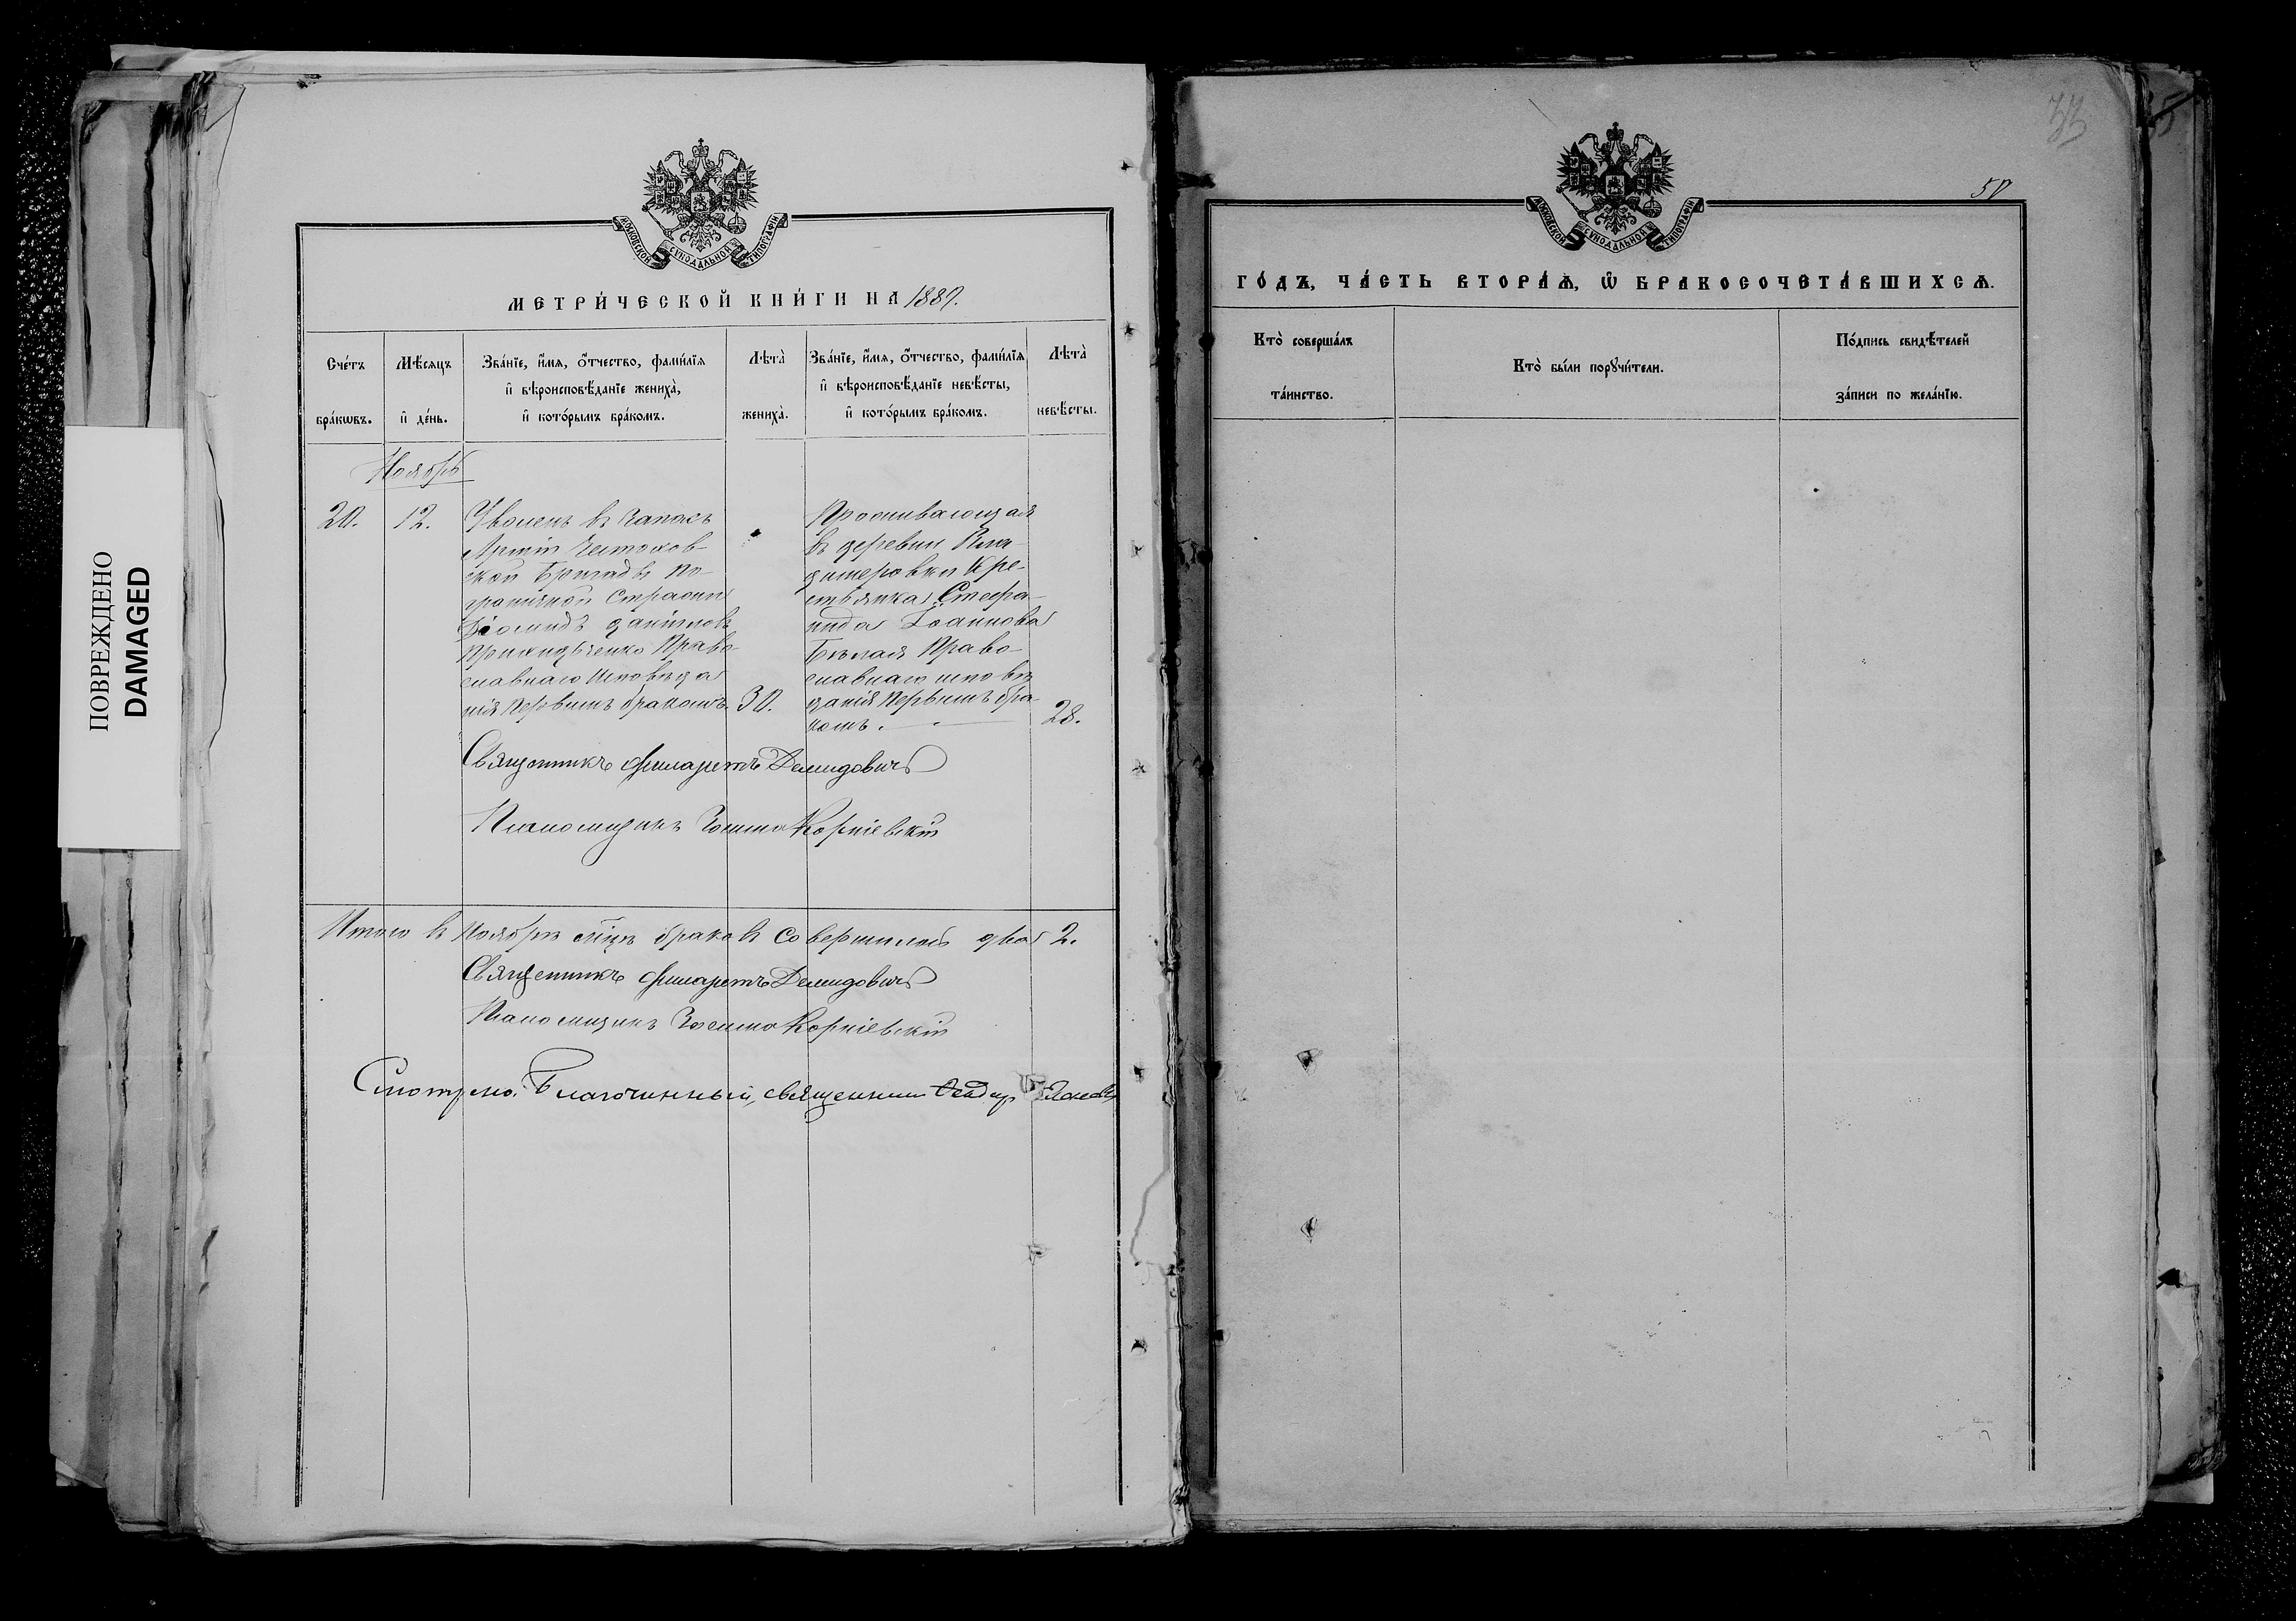 ПОВРЕЖДЕНО
DAMAGED
МОСКОВСКОЙ СѴНОДАЛЬНОЙ ТИПОГРАФІИ
МЕТРИ́ЧЕСКОЙ КНИ́ГИ НА 1889.
Сче́тъ бра́кѡвъ.
Мѣ́сяцъ и҆ де́нь.
Зва́нїе, и҆́мѧ, ѻ҆́тчество, фами́лїѧ и҆ вѣроисповѣ́данїе жениха̀, и҆ кото́рымъ бра́комъ.
Лѣта̀ жениха̀.
Зва́нїе, и҆́мѧ, ѻ҆́тчество, фами́лїѧ и҆ вѣроисповѣ́данїе невѣ́сты, и҆ кото́рымъ бра́комъ.
Лѣта̀ невѣ́сты.
Ноябрь
20.
12.
Уволенъ въ запасъ
Арміи
ской Бригадѣ по-
граничной Стражи
Даніиловъ
Право-
славнаго Исповѣда
нія Первымъ бракомъ.
30.
Проживающая
въ деревни Вла-
димеровки Кре-
стьянка Стефа-
нида Іоаннова
Бѣлая Право-
славнаго исповѣ
данія Первымъ бра-
комъ.
28.
Священникъ Филаретъ Демидовичъ
Псаломщикъ Зосима Корніевскій
Итого въ Ноябрѣ мцѣ браковъ совершилось два 2.
Священникъ Филаретъ Демидовичъ
Псаломщикъ Зосима Корніевскій
Смотрено. Благочинный, священник Ѳеодор
50
МОСКОВСКОЙ СѴНОДАЛЬНОЙ ТИПОГРАФІИ
ГО́ДЪ, ЧА́СТЬ ВТОРА́Ѧ, Ѡ҆ БРАКОСОЧЕТА́ВШИХСѦ.
Кто̀ соверша́лъ та́инство.
Кто̀ бы́ли порꙋчи́тели.
По́дпись свидѣ́телей за́писи по жела́нїю.